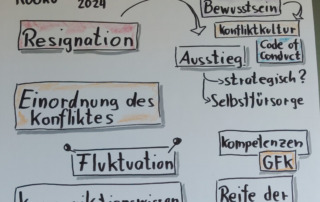 2024
Bewusstsein
Resignation
Konfliktkultur
Ausstieg!
Code of
Conduct
→strategisch?
→Selbstfürsorge
Einordnung des
Konfliktes
Fluktuation
Kompetenzen
GFK
Reife der